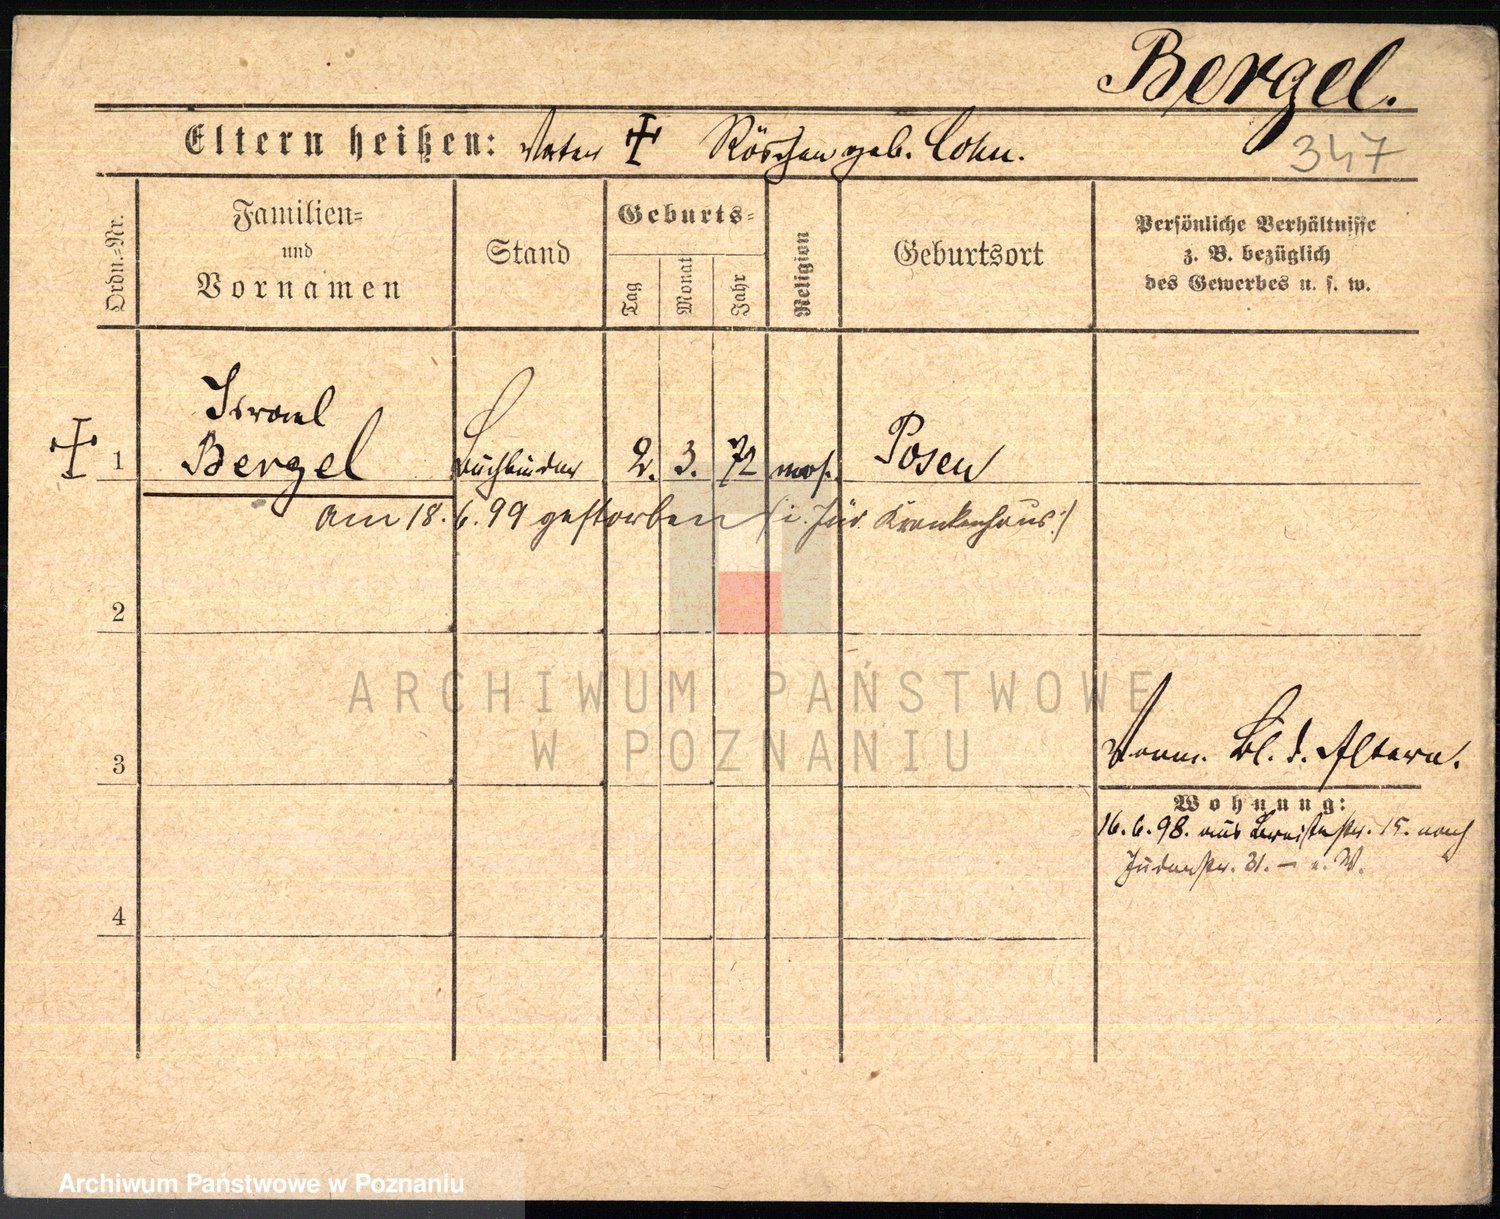 Bergel.
347
Eltern heißen: Vater ♱ Röschen geb. Cohn.
Ordn.-Nr.
Familien-
und
Vornamen
Stand
Geburts-
Tag
Monat
Jahr
Religion
Geburtsort
Persönliche Verhältnisse
z. B. bezüglich
des Gewerbes u. s. w.
Israel
♱ 1 Bergel Buchbinder 2. 3. 72 mos. Posen
am 18. 6. 99 gestorben (i. Jüd. Krankenhaus.)
2
ARCHIWUM PAŃSTWOWE
W POZNANIU
3
Bl. d. Eltern.
Wohnung:
16. 6. 98. aus Breitestr. 15. nach
Judenstr. 31. –
4
Archiwum Państwowe w Poznaniu